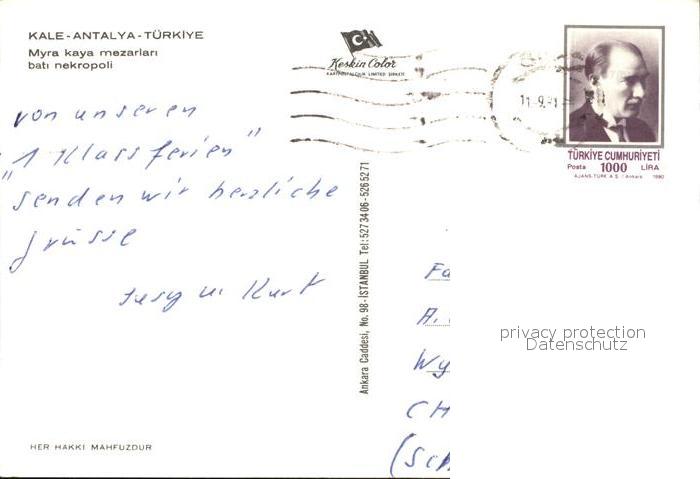 KALE-ANTALYA-TÜRKİYE
Myra kaya mezarları
batı nekropoli
Keskin Color
KARTPOSTALCILIK LIMITED ŞİRKETİ
11.9.91
TÜRKİYE CUMHURİYETİ
Posta 1000 LİRA
AJANS-TÜRK A.Ş. / Ankara 1990
von unseren
"1 Klass ferien"
senden wir herzliche
Grüsse
Susy u. Kurt
Ankara Caddesi, No. 98-İSTANBUL Tel: 5273406-5265271
Fa
A.
Wy
CH
(Sch
privacy protection
Datenschutz
HER HAKKI MAHFUZDUR